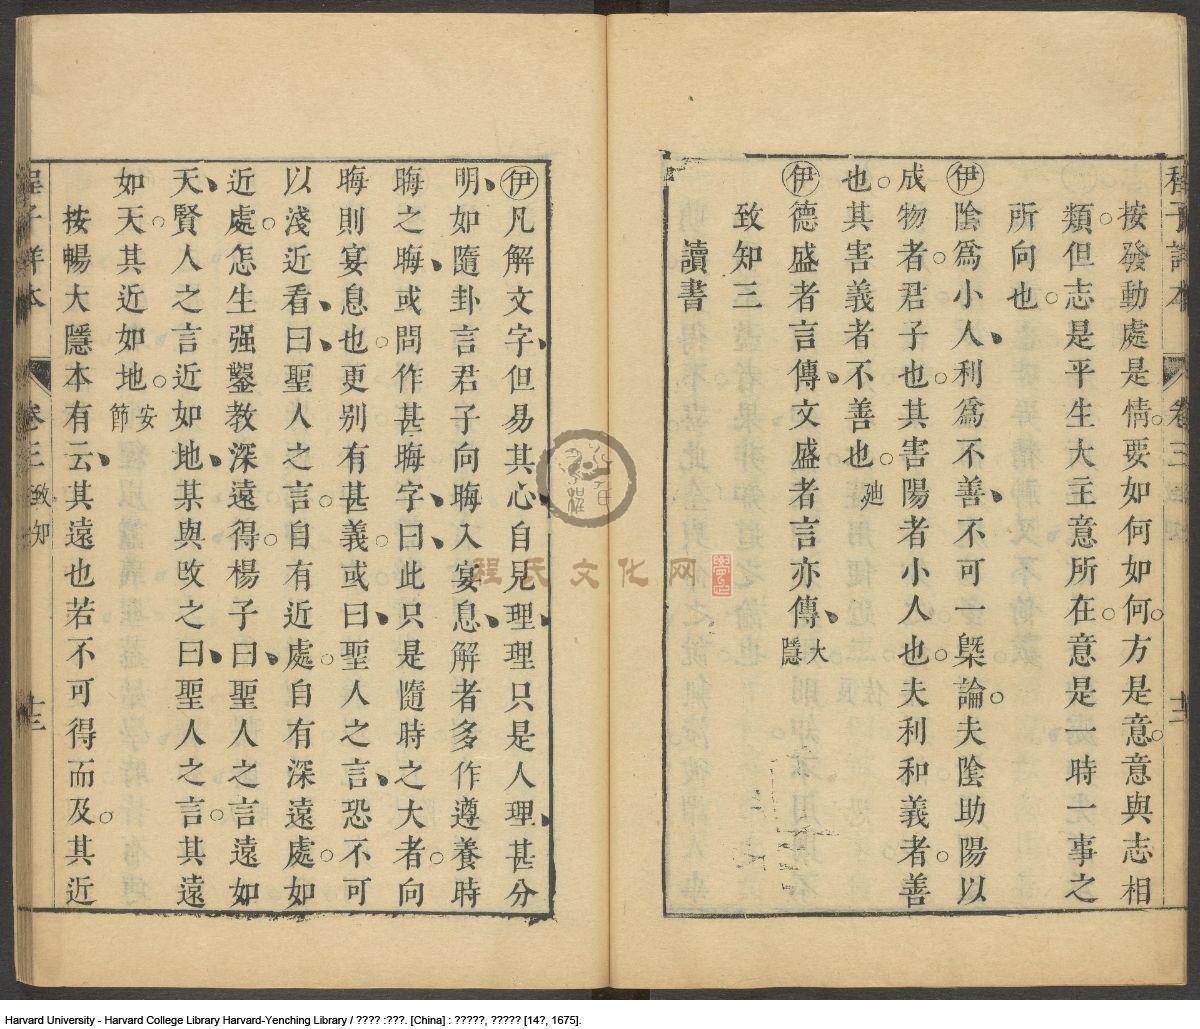 按發動處是情要如何如何方是意意與志相
類但志是平生大主意所在意是一時一事之
所向也
伊陰爲小人利爲不善不可一槩論夫陰助陽以
成物者君子也其害陽者小人也夫利和義者善
也其害義者不善也
伊德盛者言傳文盛者言亦傳大隱
致知三
讀書
伊凡解文字但易其心自見理理只是人理甚分
明如隨卦言君子向晦入宴息解者多作遵養時
晦之晦或問作甚晦字曰此只是隨時之大者向
晦則宴息也更别有甚義或曰聖人之言恐不可
以淺近看曰聖人之言自有近處自有深遠處如
近處怎生强鑿教深遠得楊子曰聖人之言遠如
天賢人之言近如地某與攺之曰聖人之言其遠
如天其近如地安節
按暢大隱本有云其遠也若不可得而及其近
卷三
致知
十三
程氏文化网
Harvard University - Harvard College Library Harvard-Yenching Library / ???? :???. [China] : ?????, ????? [14?, 1675].